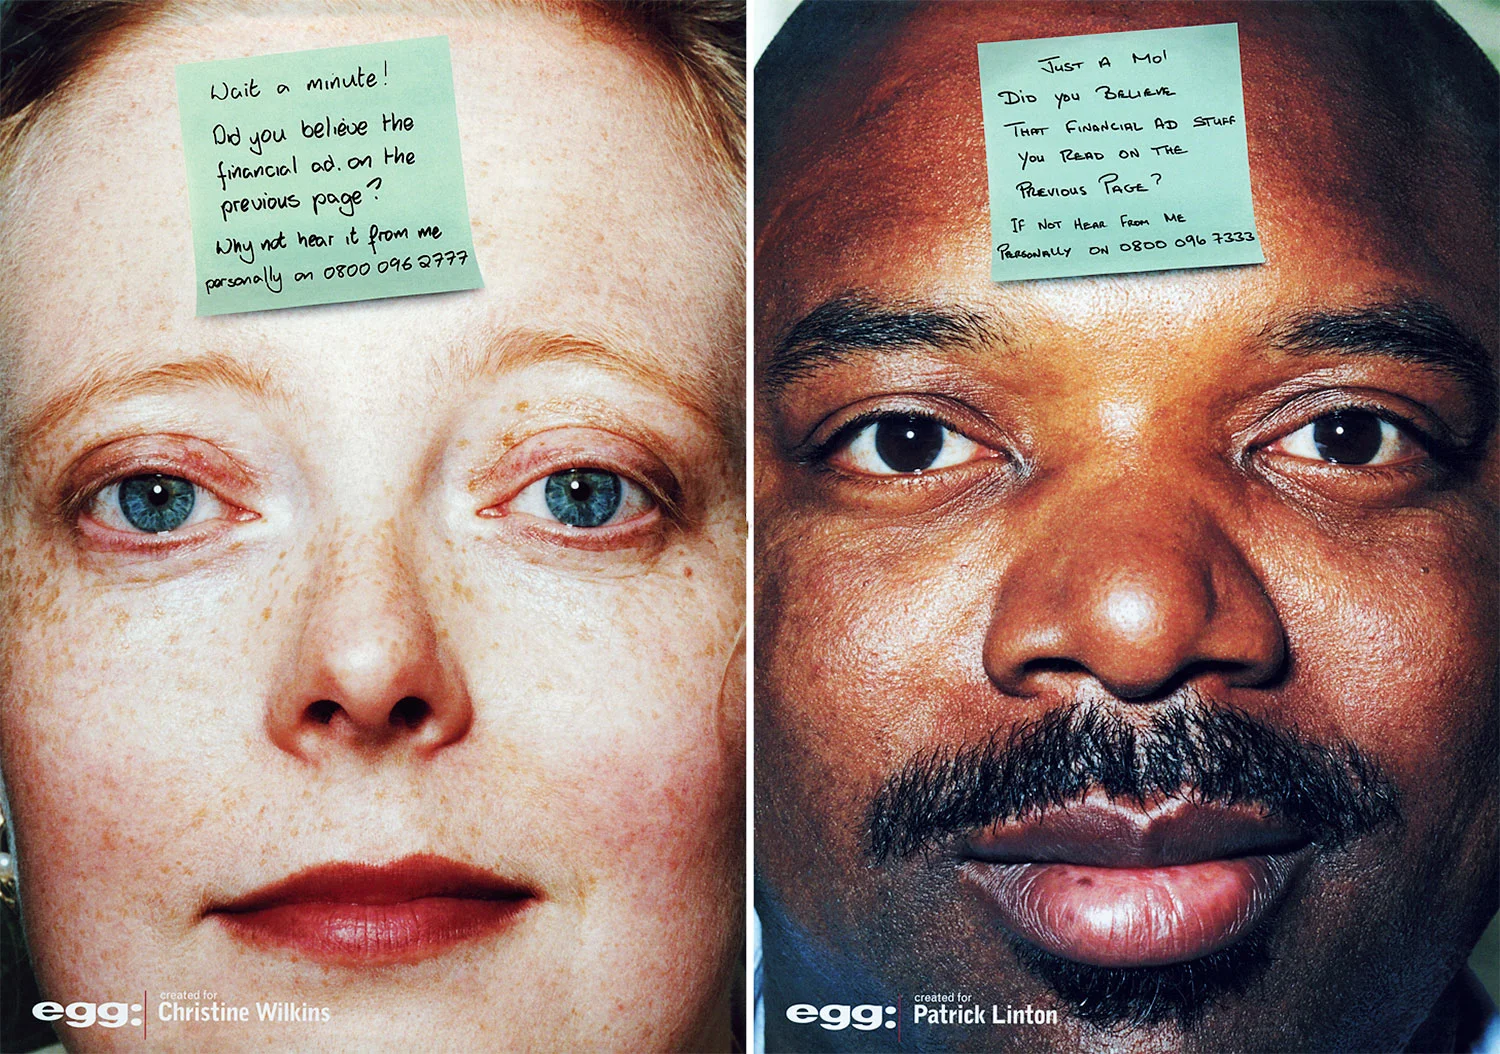 Wait a minute!
Did you believe the
financial ad. on the
previous page?
Why not hear it from me
personally on 0800 096 2777
egg:
created for
Christine Wilkins
JUST A MO!
DID YOU BELIEVE
THAT FINANCIAL AD STUFF
YOU READ ON THE
PREVIOUS PAGE?
IF NOT HEAR FROM ME
PERSONALLY ON 0800 096 7333
egg:
created for
Patrick Linton